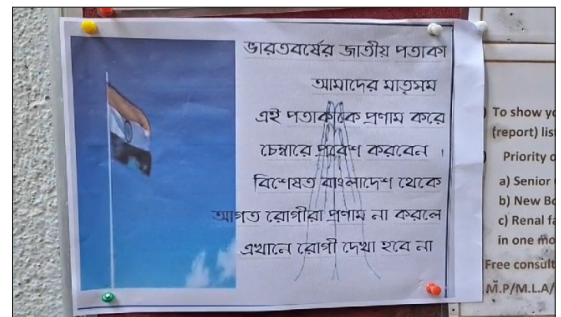 ভারতবর্ষের জাতীয় পতাকা
আমাদের মাতৃসম
এই পতাকাকে প্রণাম করে
চেম্বারে প্রবেশ করবেন ।
বিশেষত বাংলাদেশ থেকে
আগত রোগীরা প্রণাম না করলে
এখানে রোগী দেখা হবে না
To show
(report)
Priority
a) Senior
b) New
c) Renal
in one
Free consult
M.P/M.L.A/